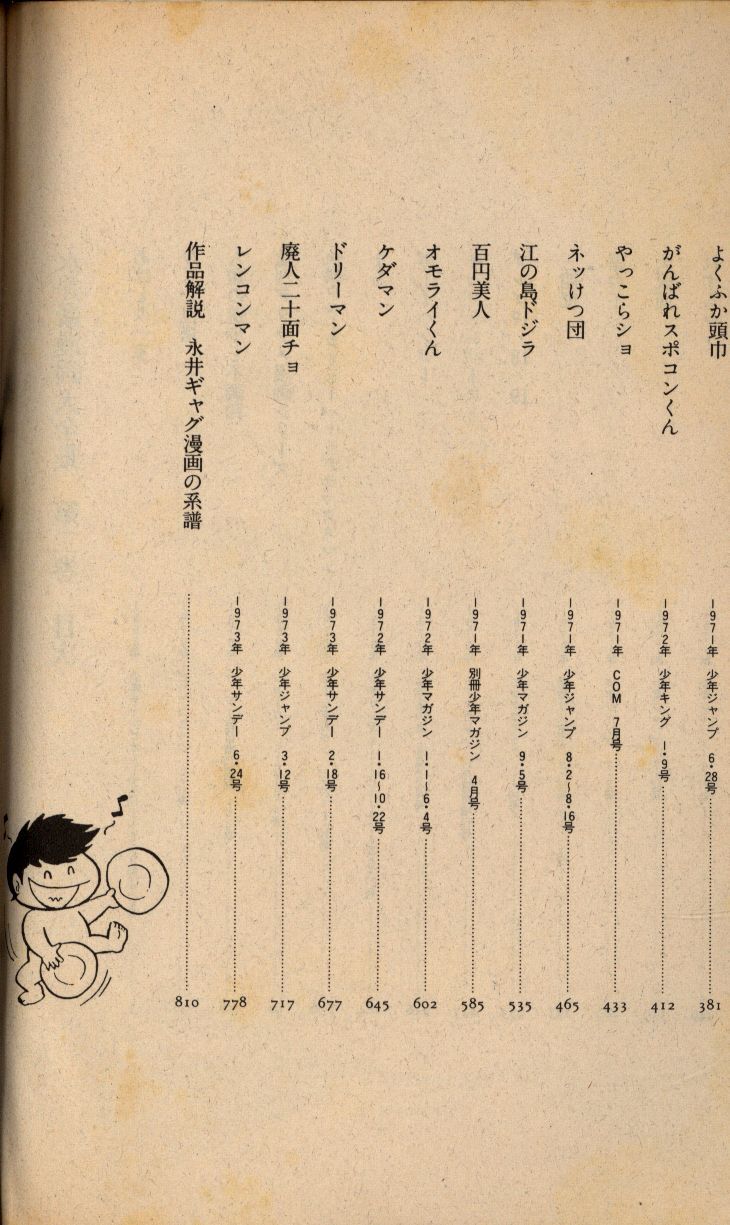 よくふか頭巾 1971年 少年ジャンプ 6・28号 381
がんばれスポコンくん 1972年 少年キング 1・9号 412
やっこらショ 1971年 COM 7月号 433
ネッけつ団 1971年 少年ジャンプ 8・2〜8・16号 465
江の島ドジラ 1971年 少年マガジン 9・5号 535
百円美人 1971年 別冊少年マガジン 4月号 585
オモライくん 1972年 少年マガジン 1・1〜6・4号 602
ケダマン 1972年 少年サンデー 1・16〜10・22号 645
ドリーマン 1973年 少年サンデー 2・18号 677
廃人二十面チョ 1973年 少年ジャンプ 3・12号 717
レンコンマン 1973年 少年サンデー 6・24号 778
作品解説 永井ギャグ漫画の系譜 810